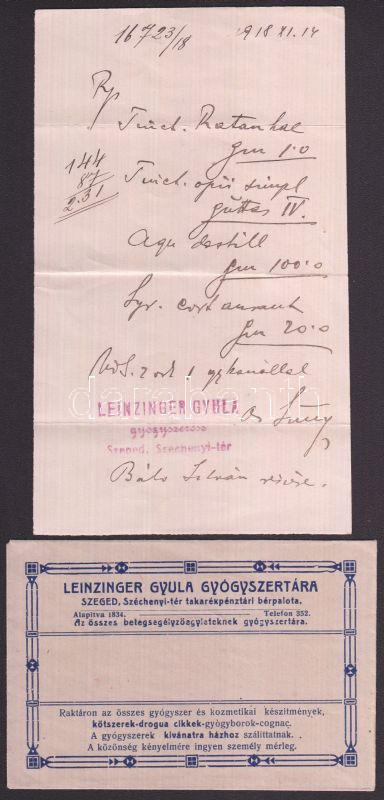 16723/18 1918 XI. 14
Rp
Tinct. Ratanhae
gm 1·0
144
87
2.31
Tinct. opii simpl
guttas IV.
Aqu destill
gm 100·0
Syr. cort aurant
gm 20·0
LEINZINGER GYULA
gyógyszerész
Szeged, Széchenyi-tér
Dr
Báló István részére.
LEINZINGER GYULA GYÓGYSZERTÁRA
SZEGED, Széchenyi-tér takarékpénztári bérpalota.
Alapitva 1834. Telefon 352.
Az összes betegsegélyzőegyleteknek gyógyszertára.
Raktáron az összes gyógyszer és kozmetikai készitmények,
kötszerek-drogua cikkek-gyógyborok-cognac.
A gyógyszerek kivánatra házhoz szálittatnak.
A közönség kényelmére ingyen személy mérleg.